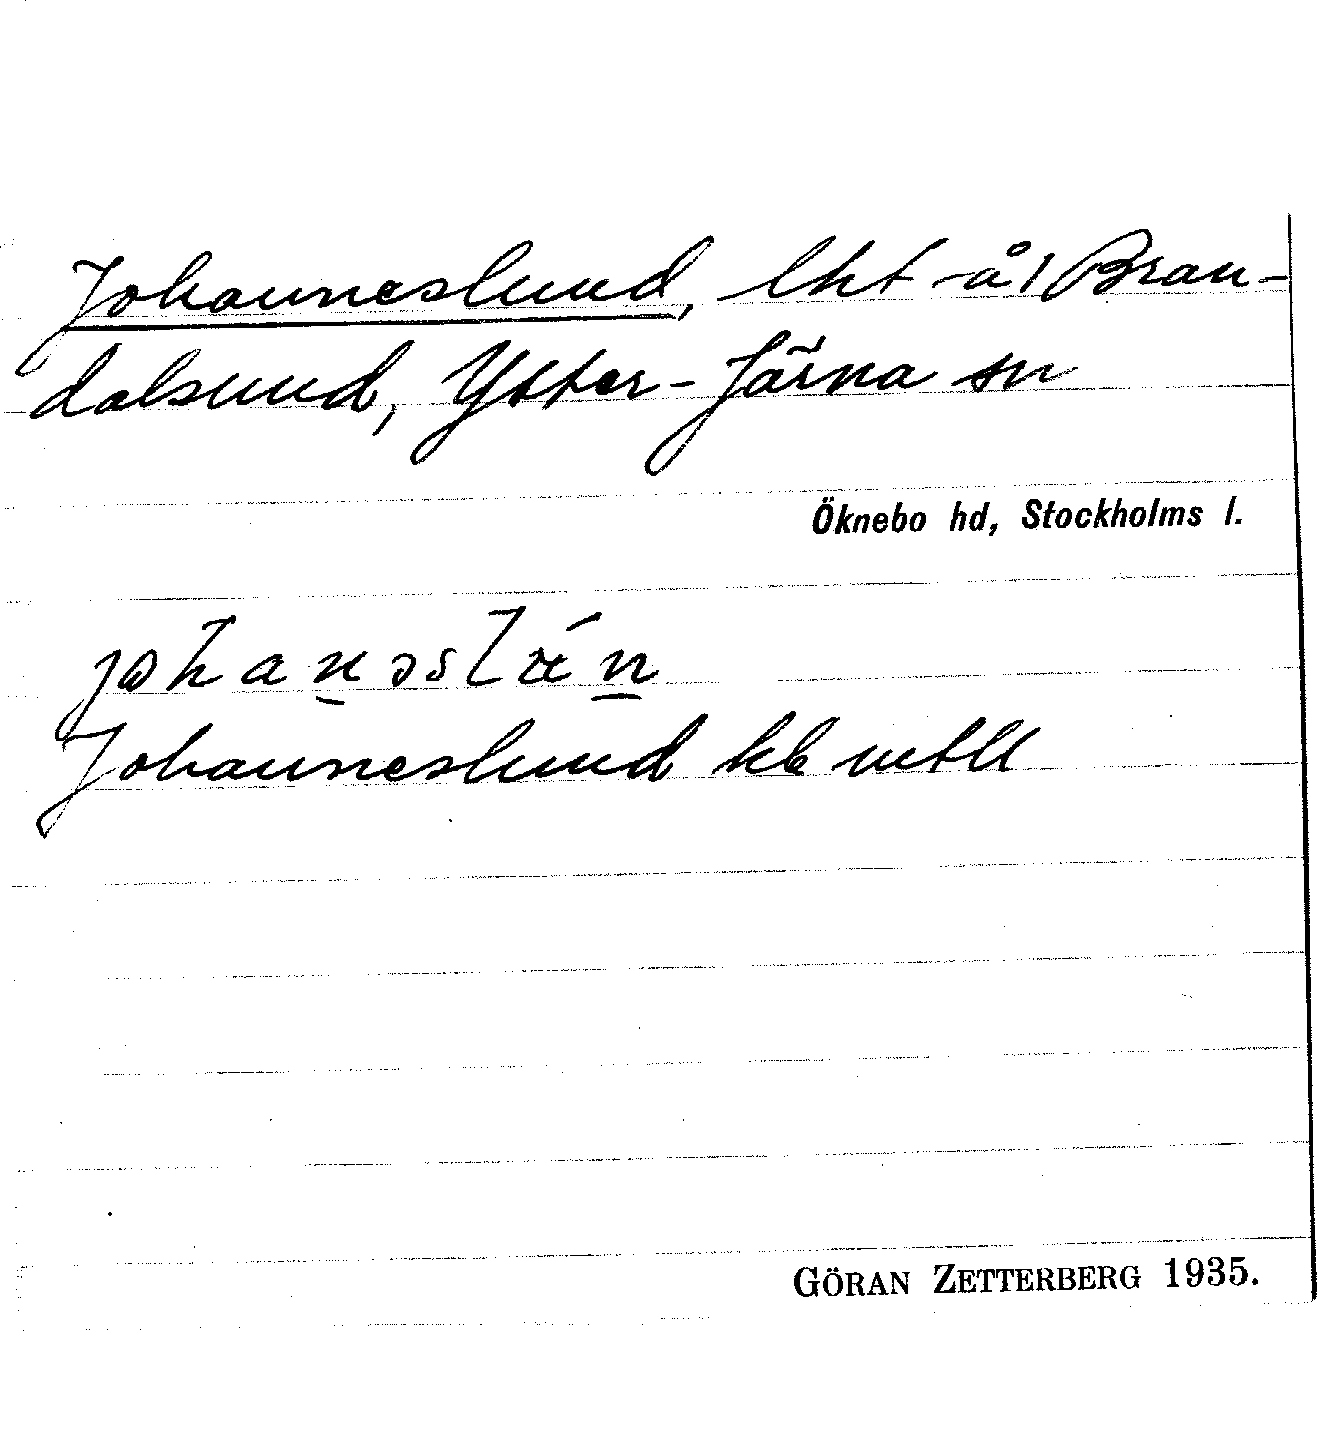 Johanneslund, lht å 1 Bran-
dalsund, Ytter-Järna sn
Öknebo hd, Stockholms l.
Johanneslund kb mtll
GÖRAN ZETTERBERG 1935.